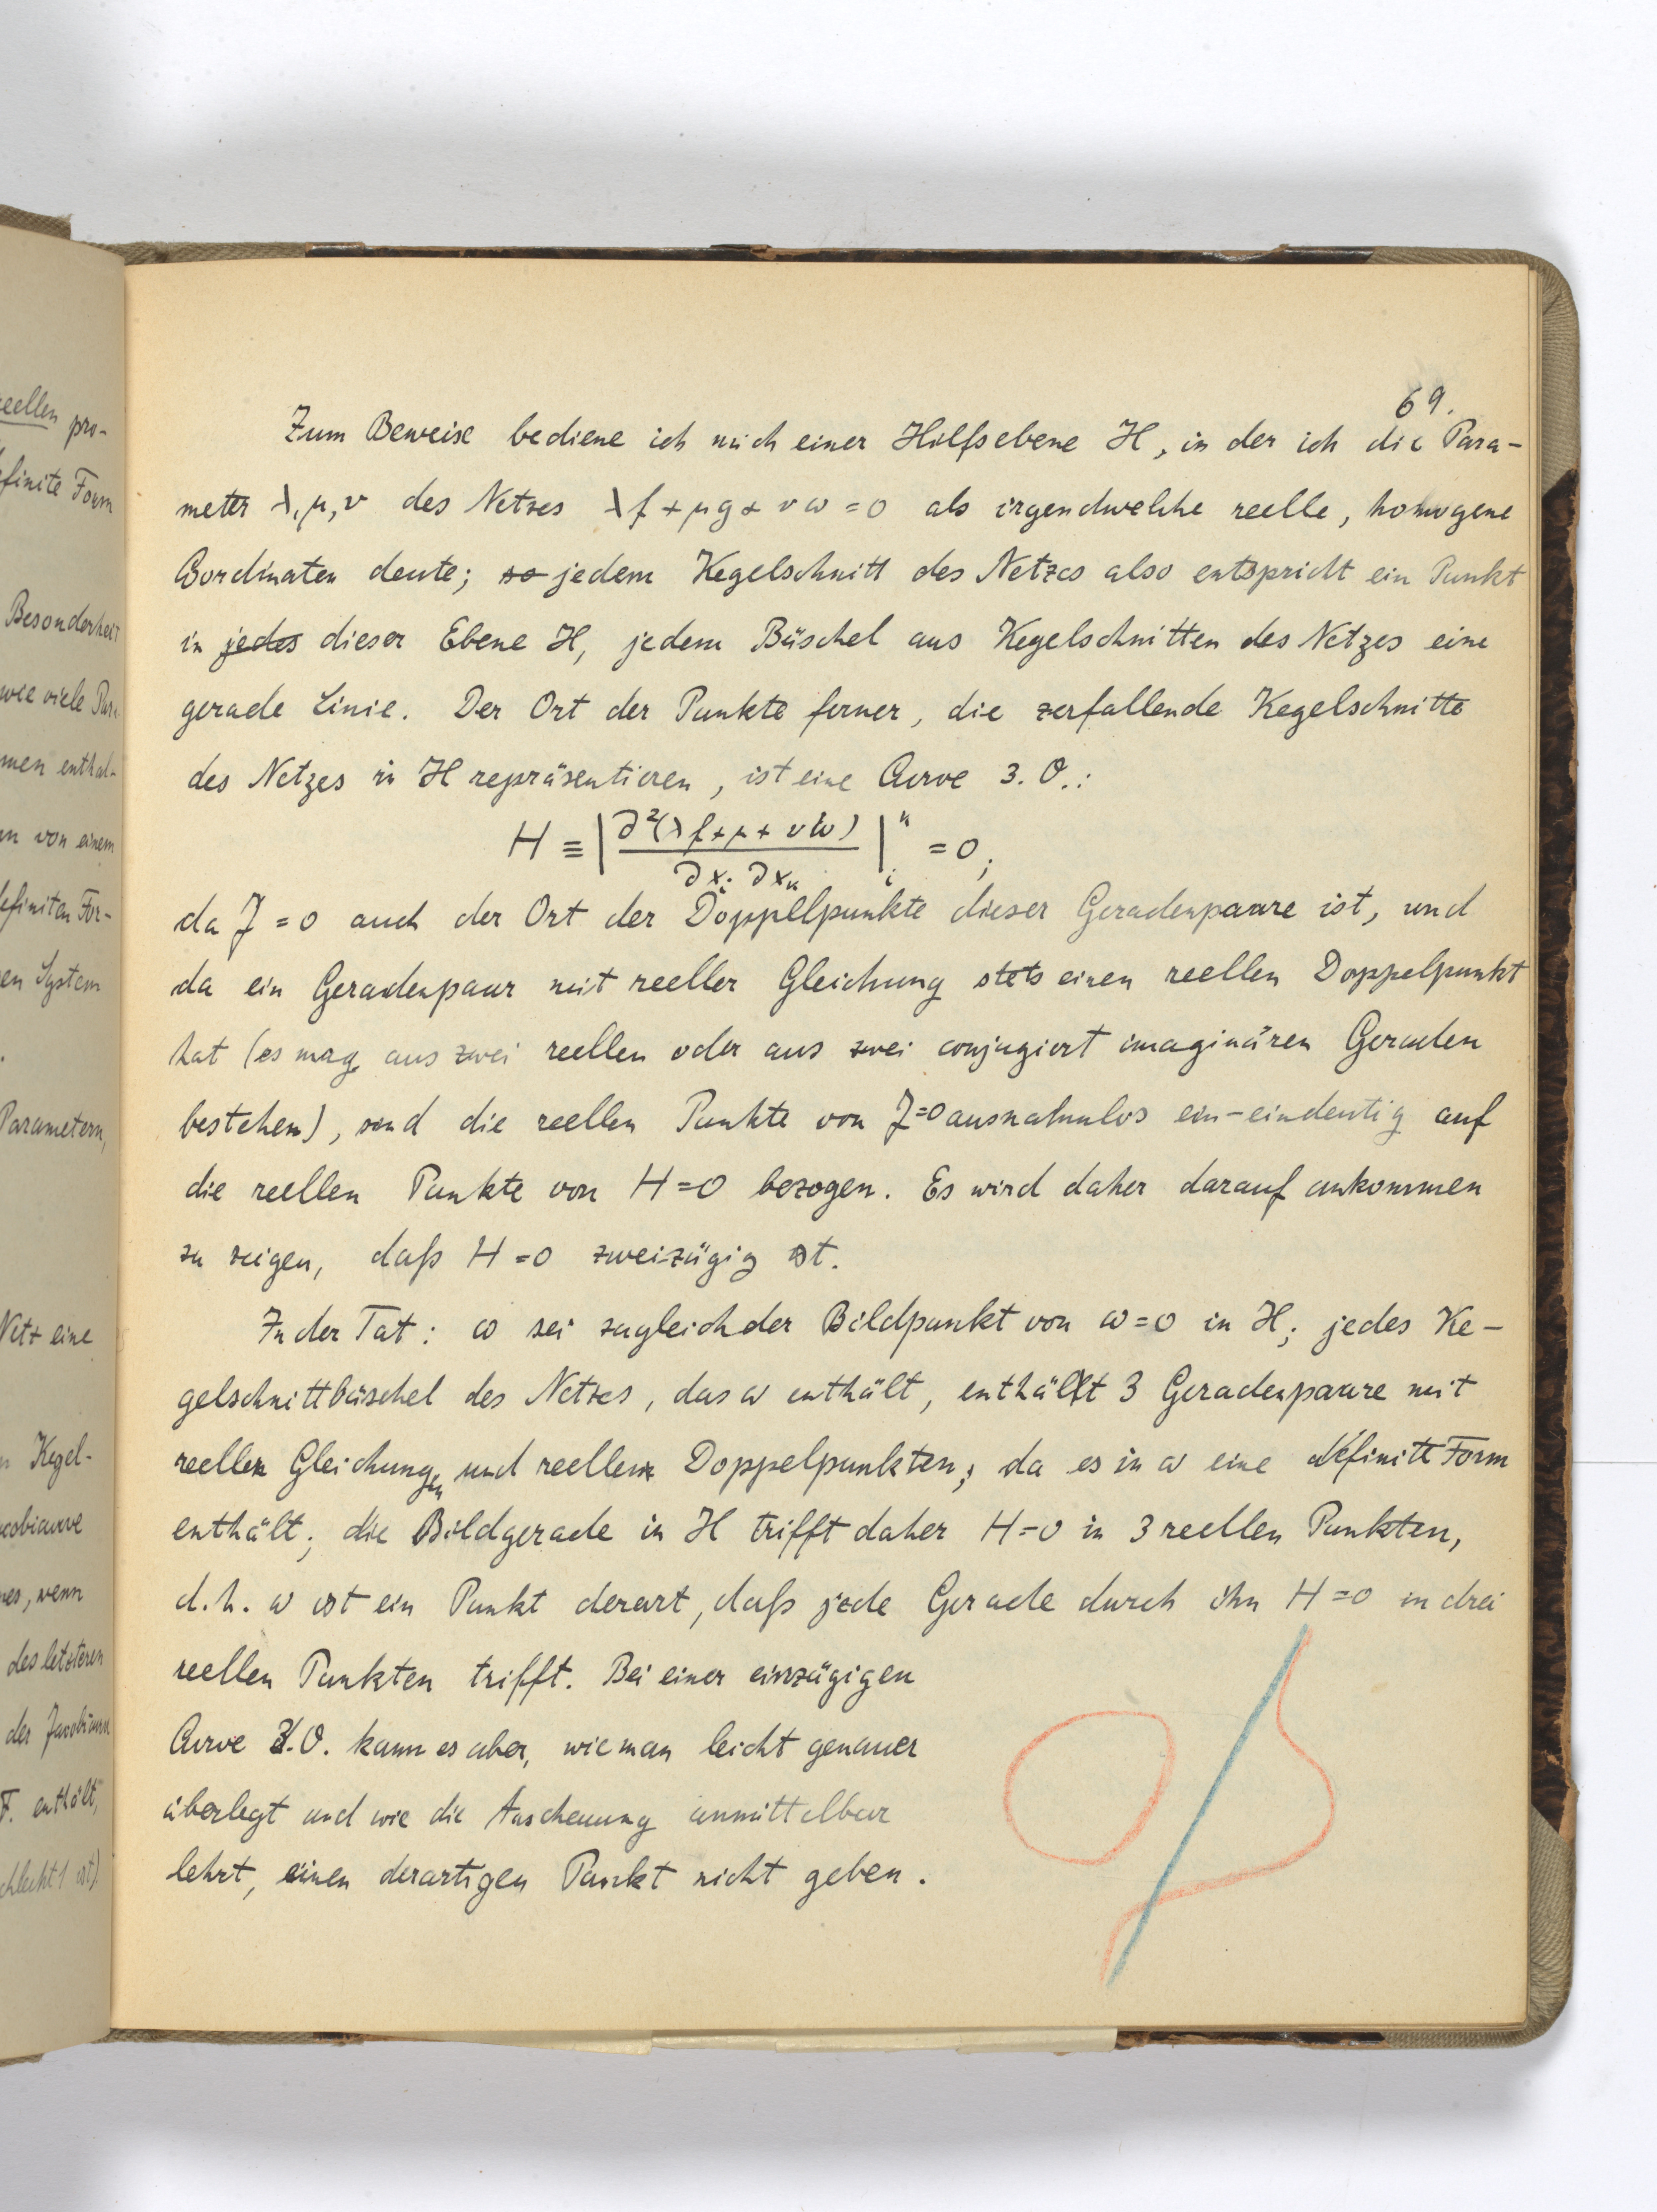 reellen pro-
efinite Form
Besonderheit
wie viele Par
men enthal-
en von einem
definiten For-
en System
Parametern,
Netz eine
n Kegel-
cobicurve
nes, wenn
des letzteren
der Jacobicurve
F. enthält,
chlecht 1 ist).
69.
Zum Beweise bediene ich mich einer Hilfsebene H, in der ich die Para-
meter λ, μ, ν des Netzes λf + μg + νω = 0 als irgendwelche reelle, homogene
Coordinaten deute; so jedem Kegelschnitt des Netzes also entspricht ein Punkt
in jedes dieser Ebene H, jedem Büschel aus Kegelschnitten des Netzes eine
gerade Linie. Der Ort der Punkte ferner, die zerfallende Kegelschnitte
des Netzes in H repräsentieren, ist eine Curve 3. O.:
H ≡ | ∂²(λf + μ + νω) / ∂xᵢ ∂xₖ |ᵢᵏ = 0;
da J = 0 auch der Ort der Doppelpunkte dieser Geradenpaare ist, und
da ein Geradenpaar mit reeller Gleichung stets einen reellen Doppelpunkt
hat (es mag aus zwei reellen oder aus zwei conjugiert imaginären Geraden
bestehen), sind die reellen Punkte von J=0 ausnahmlos ein-eindeutig auf
die reellen Punkte von H=0 bezogen. Es wird daher darauf ankommen
zu zeigen, daß H=0 zweizügig ist.
In der Tat: ω sei zugleich der Bildpunkt von ω=0 in H; jedes Ke-
gelschnittbüschel des Netzes, das ω enthält, enthällt 3 Geradenpaare mit
reellen Gleichungen und reellen Doppelpunkten, da es in ω eine definite Form
enthält; die Bildgerade in H trifft daher H=0 in 3 reellen Punkten,
d.h. ω ist ein Punkt derart, daß jede Gerade durch ihn H=0 in drei
reellen Punkten trifft. Bei einer einzügigen
Curve 3.O. kann es aber, wie man leicht genauer
überlegt und wie die Anschauung unmittelbar
lehrt, einen derartigen Punkt nicht geben.